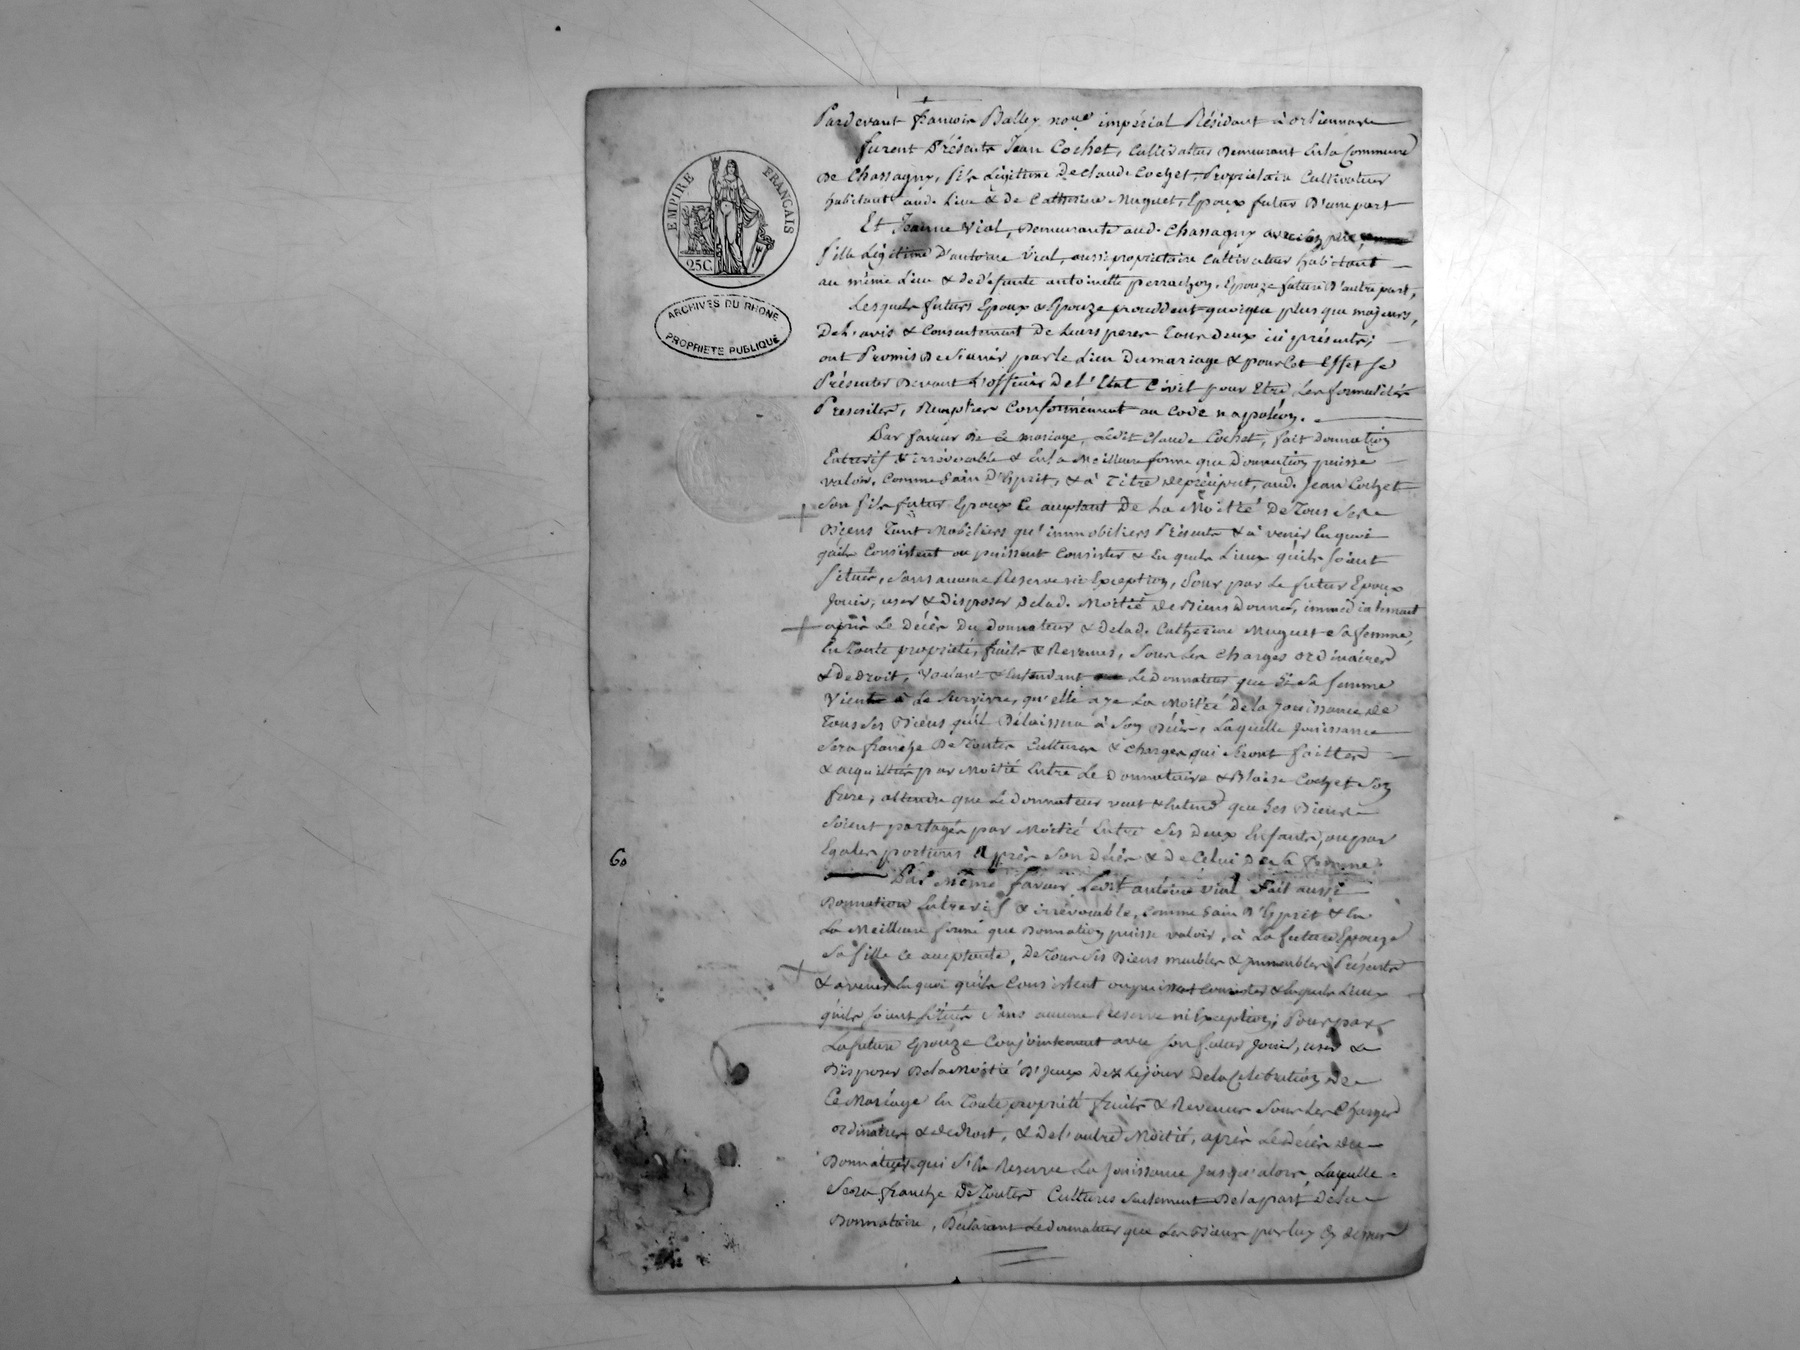 EMPIRE FRANÇAIS
25C
ARCHIVES DU RHONE
PROPRIETE PUBLIQUE
60
Pardevant françois Balley no.re impérial Résidant à orliennas
furent Présents Jean Cochet, Cultivateur demeurant en la Commune
de Chassagny, fils Légitime de Claude Cochet, Propriétaire Cultivateur
habitant aud. Lieu & de Catherine Muguet, Epoux futur D'une part
Et Jeanne Vial, demeurante aud. Chassagny avec son père
fille Légitime D'antoine Vial, aussi propriétaire Cultivateur habitant
au même Lieu & de défunte antoinette perrachon, Epouze future D'autre part,
Lesquels futurs Epoux & Epouze procédent quoique plus que majeurs,
De L'avis & Consentement De Leurs peres Tous deux ici présents,
ont Promis de S'unir par le Lien Du mariage & pour Cet Effet se
Présenter devant L'officier De L'Etat Civil pour Etre, Les formalités
Prescrites, Remplies Conformément au Code napoléon.
Par faveur de Ce mariage, Ledit Claude Cochet, fait donnation
Entrevif & irrévocable & En la Meilleure forme que Donnation puisse
valoir, Comme Sain D'Esprit, & à Titre de préciput, aud. Jean Cochet
Son fils futur Epoux Ce aceptant De La Moitié De Tous Ses
Biens Tant Mobiliers qu'immobiliers Présents & à venir En quoi
qu'ils Consistent ou puissent Consister & En quels Lieux qu'ils soient
situés, sans aucune Reserve ni Exception, Pour par Le futur Epoux
Jouir, user & Disposer De lad. Moitié de Biens donnés, immédiatement
après Le Décès Du Donnateur & De lad. Catherine Muguet Sa femme,
En Toute propriété, fruits & Revenus, Sous Les Charges ordinaires
& de Droit, Voulant & Entendant Le Donnateur que Si Sa femme
Vient à Le Survivre, qu'elle aye La Moitié de la Jouissance de
Tous Ses Biens qu'il Délaissera à Son Décès, Laquelle Jouissance
Sera franche De Toutes Cultures & Charges qui Seront faittes
& acquittées par Moitié Entre Le Donnataire & Blaise Cochet Son
frère, attendu que Le Donnateur veut & Entend que Ses Biens
Soient partagés par Moitié Entre Ses Deux Enfants, ou par
Egales portions après Son Décès & de Celui De Sa femme.
Par Même faveur Ledit antoine Vial Fait aussi
Donnation Entrevif & irrévocable, Comme Sain D'Esprit & En
La Meilleure forme que Donnation puisse valoir, à La future Epouze
Sa fille Ce aceptante, De Tous Ses Biens meubles & immeubles Présents
& à venir En quoi qu'ils Consistent ou puissent Consister & En quels Lieux
qu'ils soient situés Sans aucune Reserve ni Exception; Pour par
La future Epouze Conjointement avec Son futur Jouir, user &
Disposer De la Moitié D'Iceux Dez Le jour De la Célébration de
Ce Mariage En Toute propriété fruits & Revenus Sous Les Charges
ordinaires & de droit, & De L'autre Moitié, après Le Décès du
Donnateur qui S'En Reserve La Jouissance Jusqu'alors, Laquelle
Sera franche De Toutes Cultures Seulement De la part De la
Donnataire, Déclarant Le Donnateur que Les Biens par Luy